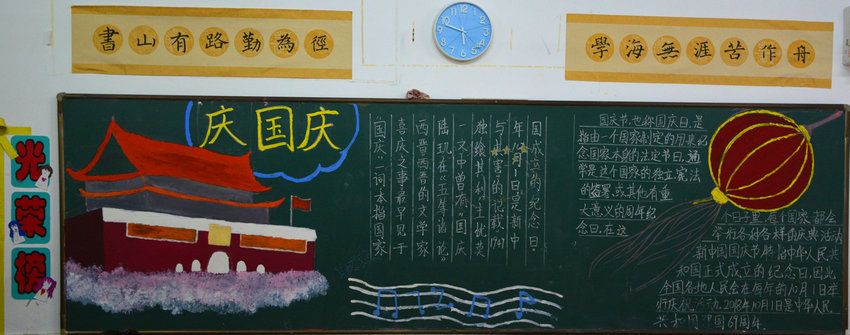 書山有路勤為徑
學海無涯苦作舟
光荣榜
庆国庆
国成立的纪念日。
年10月1日是新中
与未害的记载1949
独绘其利"主优荣
一文中曾有"国庆
陆现在《五等诸论》
西晋西晋的文学家
喜庆之事最早见于
"国庆"一词本指国家
国庆节,也称国庆日,是
指由一个国家制定的用来纪
念国家本身的法定节日,通
常是这个国家的独立、宪法
的签署,或其他有重
大意义的周年纪
念日,在这
个日子里,各个国家都会
举行各种各样的庆典活动
新中国国庆节特指中华人民共
和国正式成立的纪念日,因此
全国各地人民会在每年的10月1日举
行庆祝活动,2018年10月1日是中华人民
共和国建国69周年。